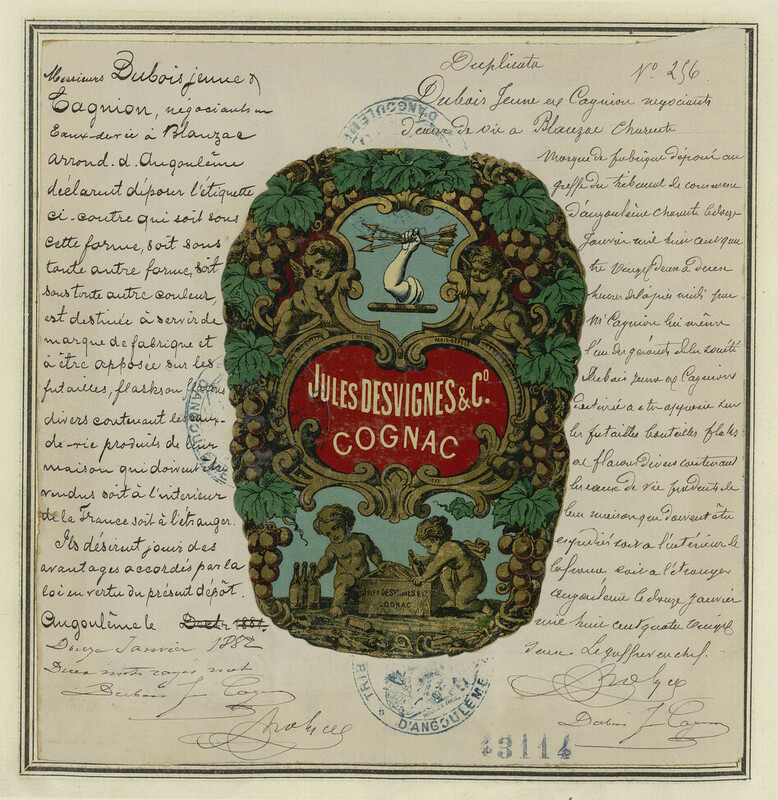 Messieurs Dubois jeune &
Cagnion, négociants en
Eaux-de-vie à Blanzac
arrond. d. Angoulême
déclarent déposer l'étiquette
ci-contre qui soit sous
cette forme, soit sous
toute autre forme, soit
sous toute autre couleur,
est destinée à servir de
marque de fabrique et
à être apposée sur les
futailles, flasks ou flacons
divers contenant les eaux-
de-vie produits de leur
maison qui doivent être
vendus soit à l'intérieur
de la France soit à l'étranger.
Ils désirent jouir des
avantages accordés par la
loi en vertu du présent dépôt.
Angoulême le
Douze Janvier 1882
Dubois J Cagnion
Duplicata
No. 256
Dubois Jeune et Cagnion negociants
d'eaux de vie a Blanzac Charente
Marque de fabrique déposée au
greffe du tribunal de commerce
d'angoulême charente le douze
Janvier mil huit cent qua
tre vingt deux à deux
heures de l'après midi par
Mr Cagnion lui même
l'un des gérants de la société
Dubois jeune et Cagnion
destinée a etre apposée sur
les futailles bouteilles flasks
et flacons divers contenant
les eaux de vie produits de
leur maison qui doivent être
expédiés soit a l'intérieur de
la France soit a l'étranger
angoulême le douze janvier
mil huit cent quatre vingt
deux Le greffier en chef.
Dubois J Cagnion
JULES DESVIGNES & Co.
COGNAC
JULES DESVIGNES & Co
COGNAC
D'ANGOULEME
D'ANGOULEME
TRI
D'ANGOULEME
43114